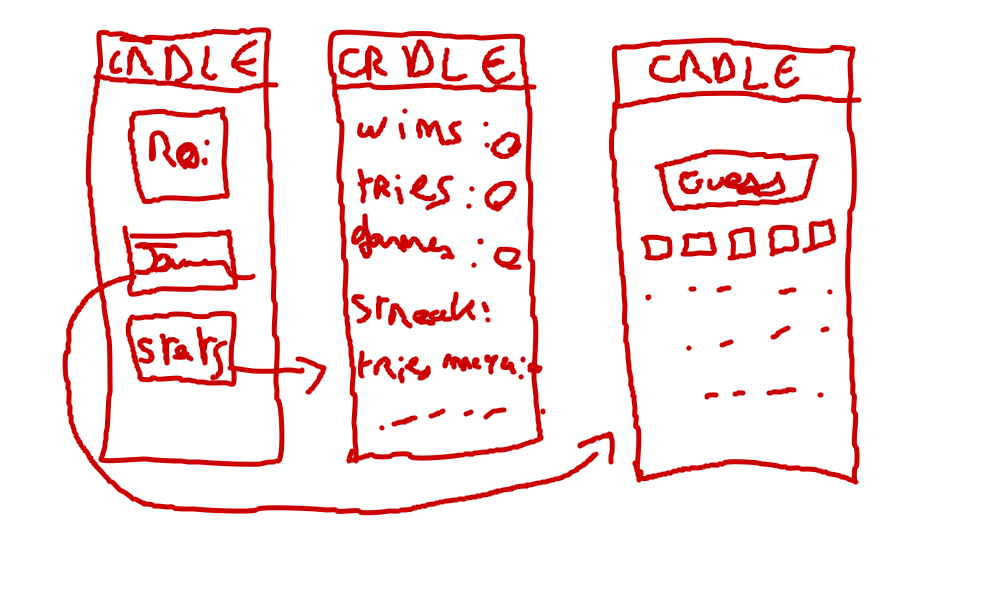 CRDLE
Roi
stats
CRDLE
wins : 0
tries : 0
games : 0
streak:
tries moya:
CRDLE
Guess